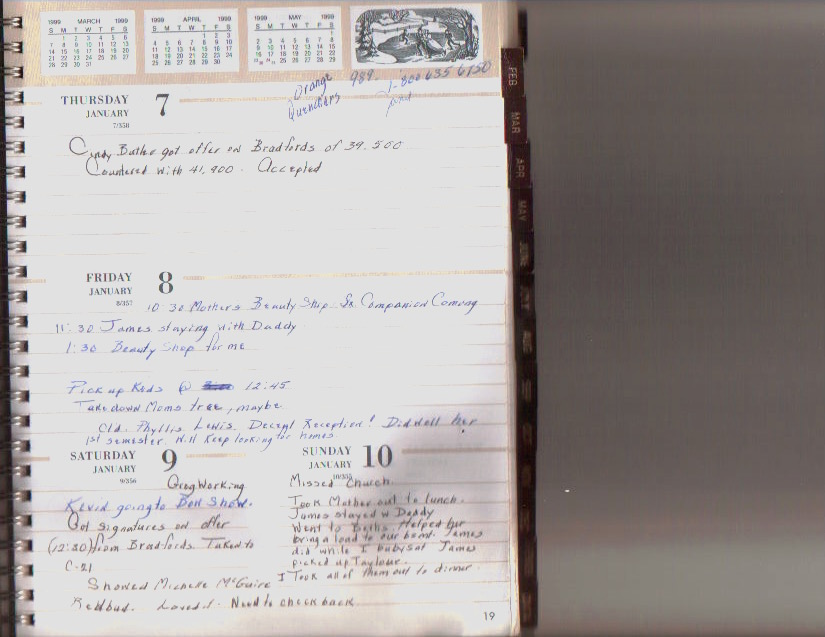 1999 MARCH 1999
S M T W T F S
1 2 3 4 5 6
7 8 9 10 11 12 13
14 15 16 17 18 19 20
21 22 23 24 25 26 27
28 29 30 31
1999 APRIL 1999
S M T W T F S
1 2 3
4 5 6 7 8 9 10
11 12 13 14 15 16 17
18 19 20 21 22 23 24
25 26 27 28 29 30
1999 MAY 1999
S M T W T F S
1
2 3 4 5 6 7 8
9 10 11 12 13 14 15
16 17 18 19 20 21 22
Orange 989. 1-800 635 6150
Quenchers and
THURSDAY 7
JANUARY
7/358
Cindy got offer on Bradfords of 39,500
Countered with 41,900. Accepted
FRIDAY 8
JANUARY
8/357
10 30 Mothers Beauty Shop Sr. Companion Coming
11:30 James staying with Daddy
1:30 Beauty Shop for me
Pick up Kids @ 12:45
Take down Moms tree, maybe
Cld. Phyllis Lewis. Reception! Did well her
1st semester. Will Keep looking for homes.
SATURDAY 9
JANUARY
9/356
Greg Working
Kevin going to Show.
Got Signatures on offer
(12:30) from Bradfords Taken to
C-21
Showed Michelle McGuire
Redbud. Loved it. Need to check back
SUNDAY 10
JANUARY
10/355
Missed Church.
Took Mother out to lunch.
James stayed w Daddy
Went to Beths. Helped her
bring a load to our James
did while I babysat James
picked up
I Took all of them out to dinner.
19
FEB
MAR
APR
MAY
JUNE